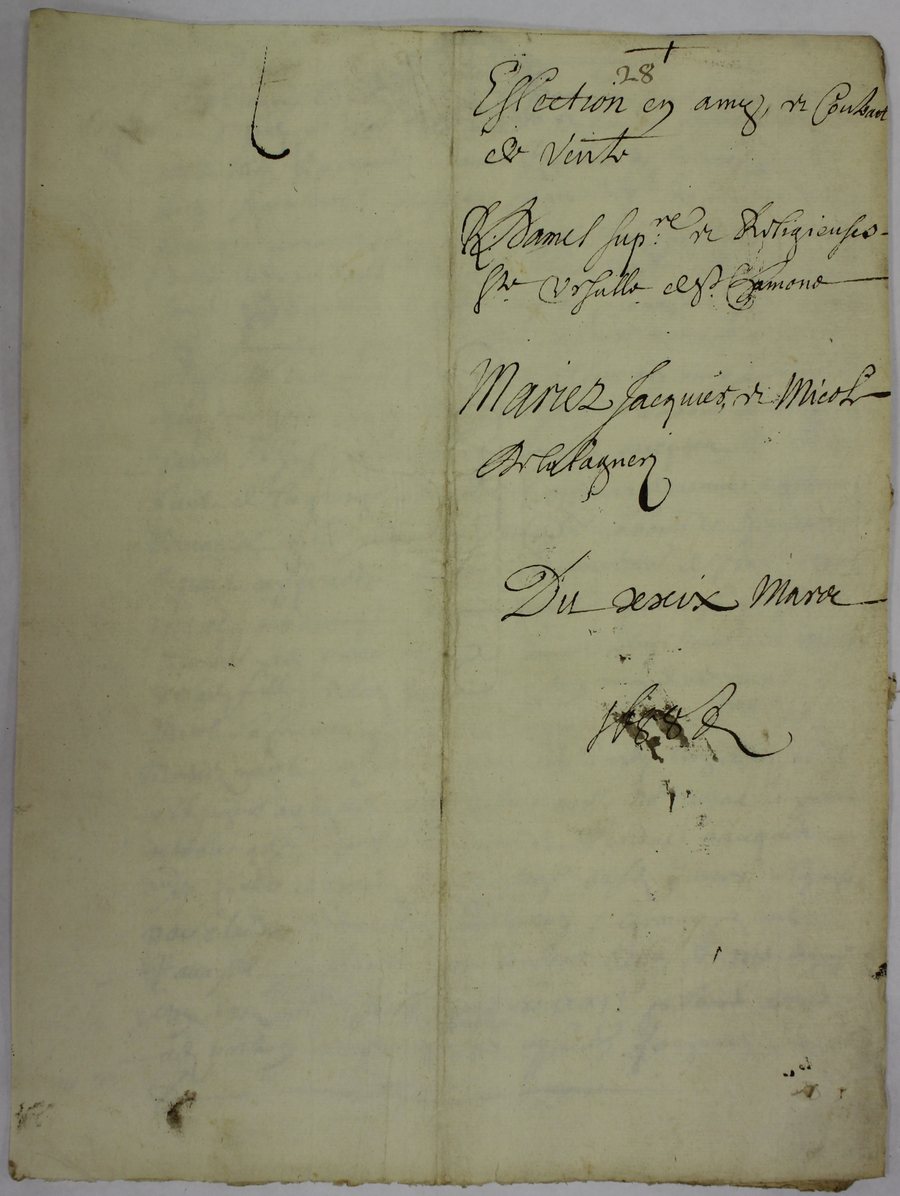 28
Eslection en amy, de Contract
de Vente
R. Dames sup.re de Religieuses
Ste Ursulle de St Chamond
Mariez Jacques, de Micol
Du xxix Mars
1688